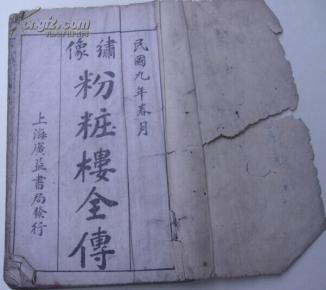 民國九年春月
繡像
粉粧樓全傳
上海廣益書局發行